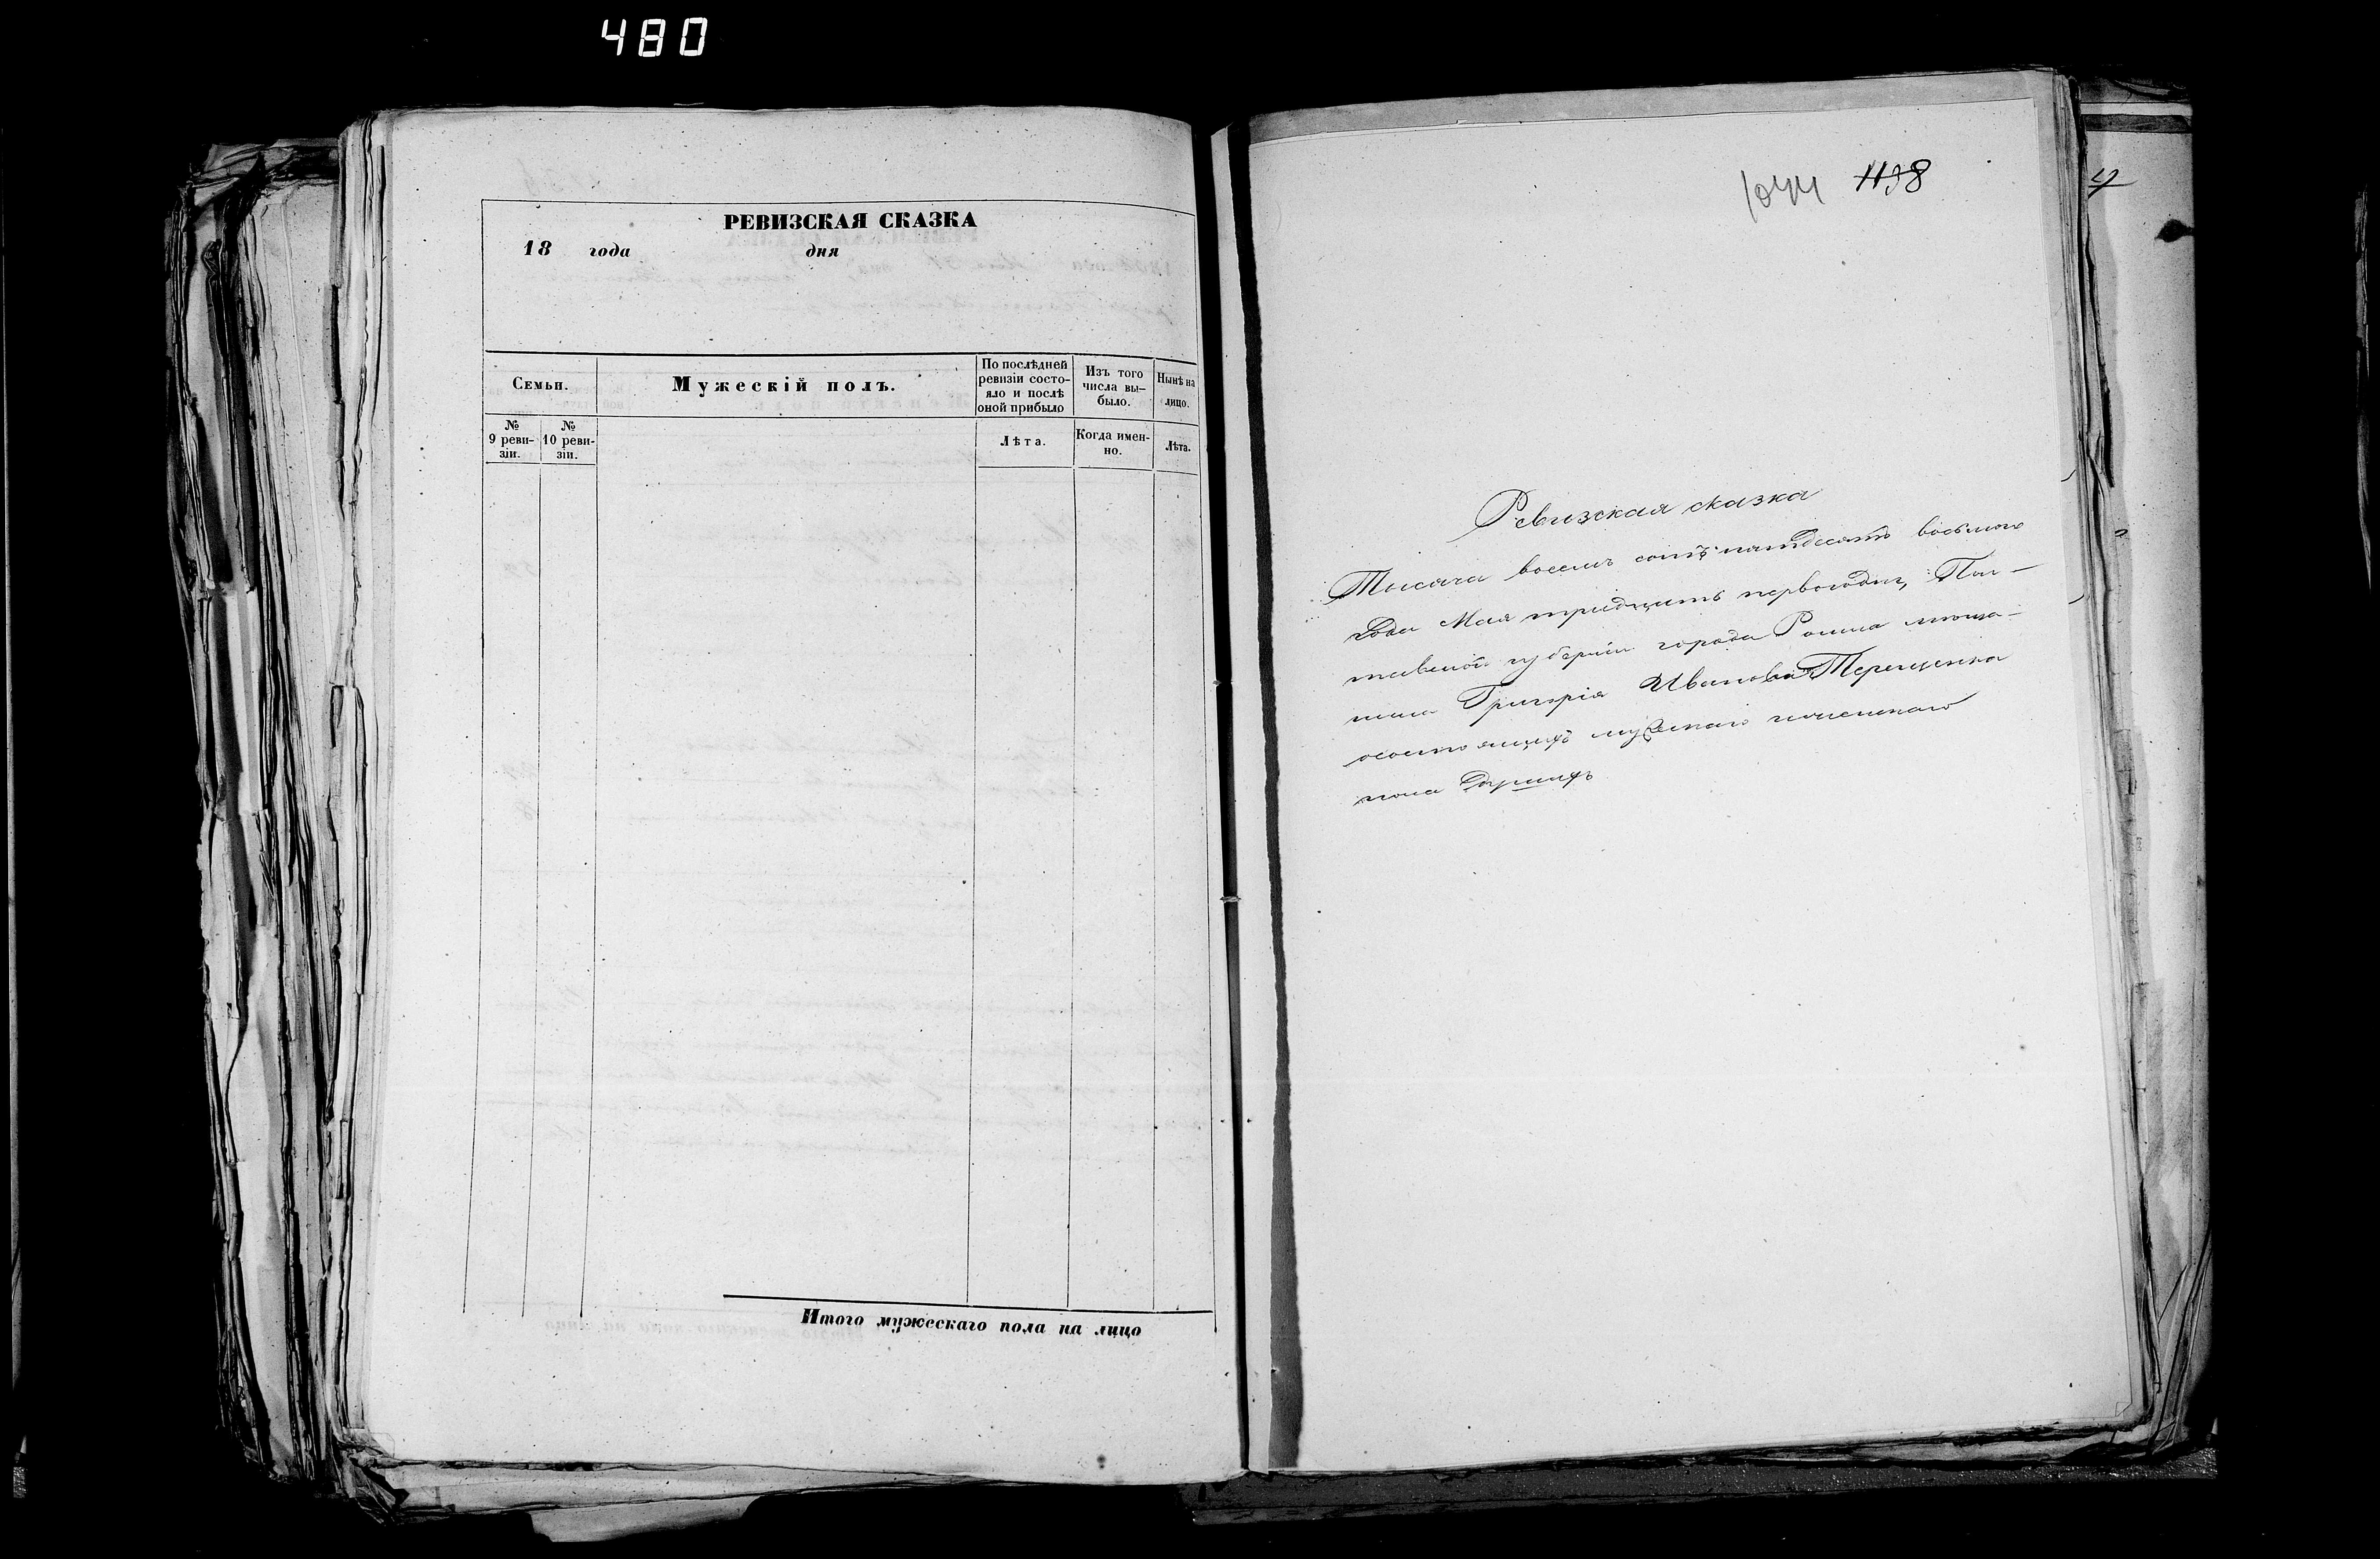 480
РЕВИЗСКАЯ СКАЗКА
18 года дня
Семьи.
Мужескій полъ.
По послѣдней ревизіи состо-
яло и послѣ оной прибыло
Изъ того числа вы-
было.
Нынѣ на лицо.
№ 9 реви-
зіи.
№ 10 реви-
зіи.
Лѣта.
Когда имен-
но.
Лѣта.
Итого мужескаго пола на лицо
1044 1138
Ревизская сказка
Тысяча восемь сотъ пятдесятъ восьмого
Года Мая тридцать первого дня, Пол-
тавской губерніи города Ромна мѣща-
нина Григорія Иванова Терещенка
о состоящихъ мужескаго и женскаго
пола душахъ